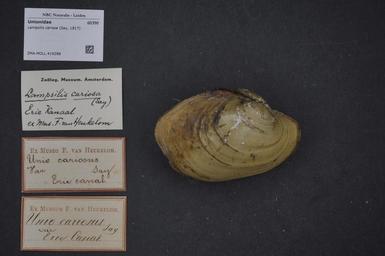 NBC Naturalis - Leiden
Unionidae
Lampsilis cariosa (Say, 1817)
ZMA.MOLL.419286
Zoölog. Museum. Amsterdam.
Lampsilis cariosa
(Say)
Erie Kanaal
ex Mus. F. van Heukelom
Ex Museo F. VAN HEUKELOM.
Unio cariosus
Var Say
Erie canal
Ex Museum F. VAN HEUKELOM.
Unio cariosus
var Say
Erie Canal